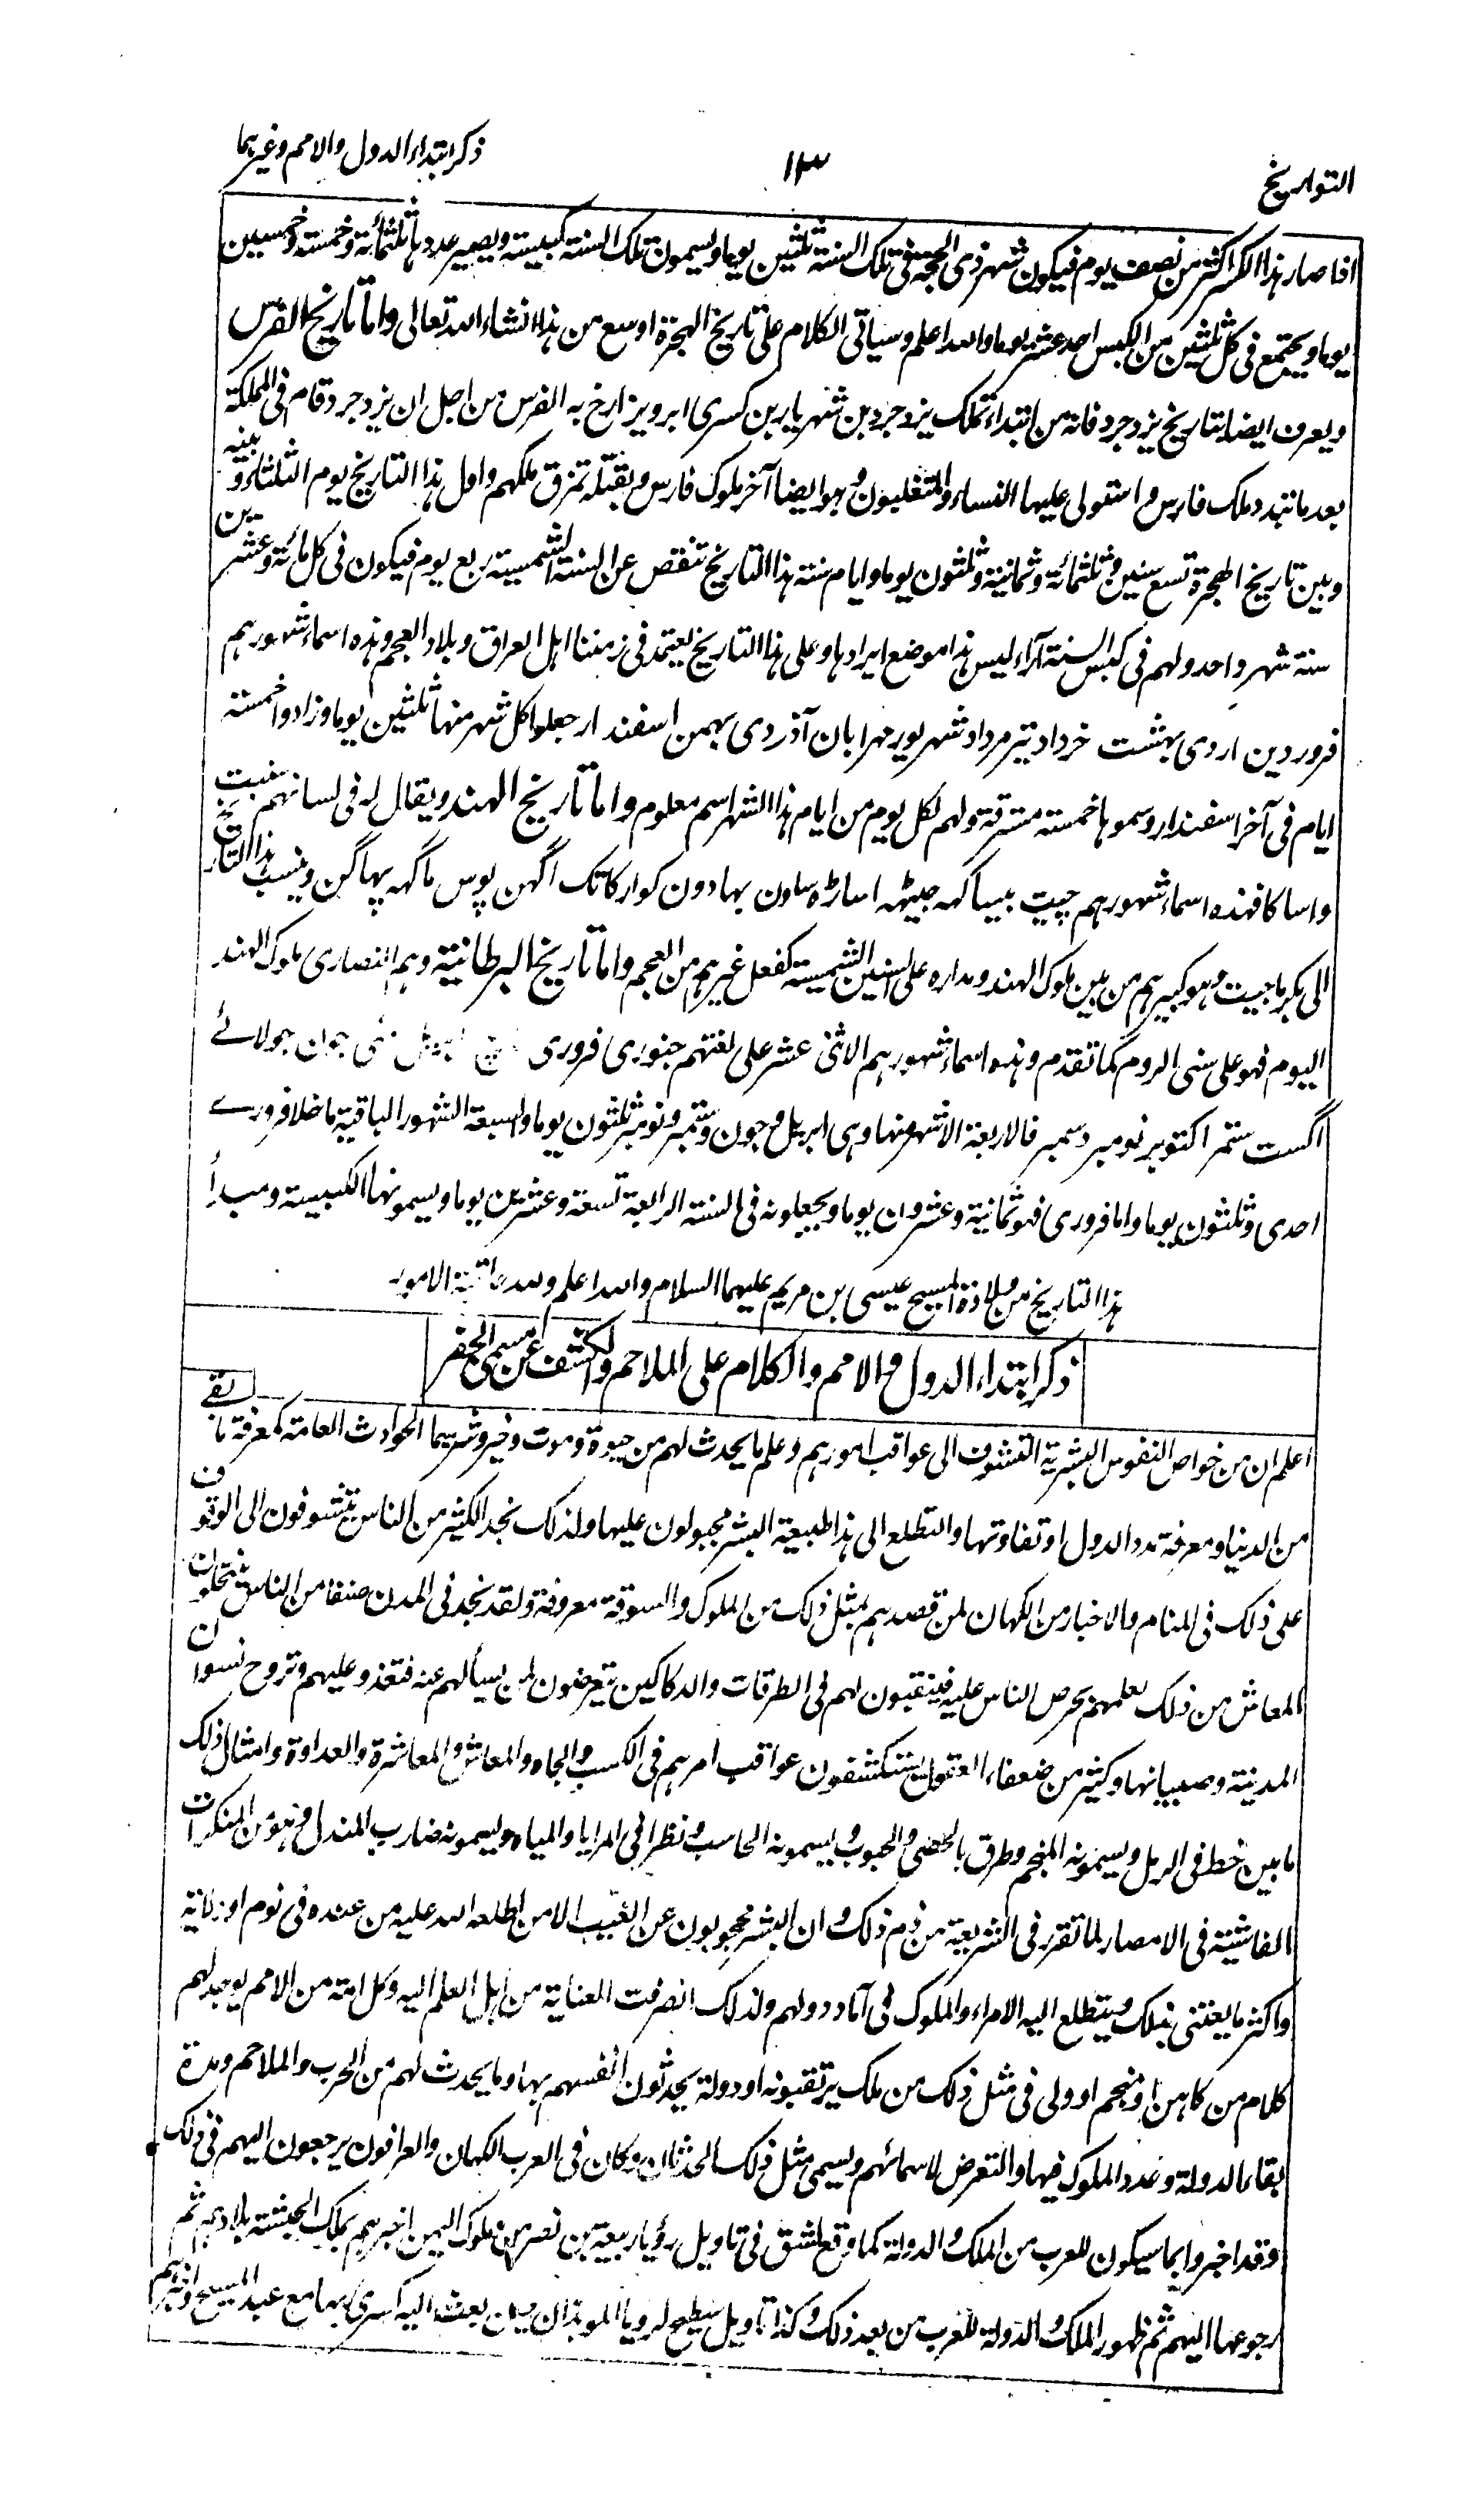 التواريخ
١٣
ذكر ابتداء الدول والامم وغيرهما
اذا صار هذا الكسر اكثر من نصف يوم فيكون شهر ذى الحجة فى تلك السنة ثلثين يوما ويسمون تلك السنة كبيسة ويصير عددها ثلثمائة وخمسة وخمسين
يوما ويجتمع فى كل ثلثين من الكبس احد عشر يوما والله اعلم وسياتى الكلام على تاريخ الهجرة اوسع من هذا انشاء الله تعالى واما تاريخ الفرس
ويعرف ايضا بتاريخ يزدجرد فانه من ابتداء تملك يزدجرد بن شهريار بن كسرى ابرويز ارخ به الفرس من اجل ان يزدجرد قام فى المملكة
بعد ما تبدد ملك فارس واستولى عليها النساء والمتغلبون وهو ايضا آخر ملوك فارس وبقتله تمزق ملكهم واول هذا التاريخ يوم الثلثاء وبينه
وبين تاريخ الهجرة تسع سنين وثلثمائة وثمانية وثلثون يوما وايام سنة هذا التاريخ تنقص عن السنة الشمسية ربع يوم فيكون فى كل مائة وعشرين
سنة شهر واحد ولهم فى كبس السنة آراء ليس هذا موضع ايرادها وعلى هذا التاريخ يعتمد فى زمننا اهل العراق وبلاد العجم وهذه اسماء شهورهم
فروردين اردى بهشت خرداد تير مرداد شهريور مهر ابان آذر دى بهمن اسفندار جعلوا كل شهر منها ثلثين يوما وزادوا خمسة
ايام فى آخر اسفندار وسموها خمسة مسترقة ولهم لكل يوم من ايام هذا الشهر اسم معلوم واما تاريخ الهند ويقال له فى لسانهم سنبت
واسا كا فهذه اسماء شهورهم چيت بيساكهه جيٹهه اساڑه ساون بهادون كوار كاتك اگهن پوس ماگهه پهاگن وينسب هذا التاريخ
الى بكرماجيت وهو كبيرهم من بين ملوك الهند ومداره على السنين الشمسية كفعل غيرهم من العجم واما تاريخ البرطانية وهم النصارى ملوك الهند
اليوم فهو على سنى الروم كما تقدم وهذه اسماء شهورهم الاثنى عشر على لغتهم جنورى فرورى اپريل مئى جون جولائے
اگست ستمبر اكتوبر نومبر دسمبر فالاربعة الاشهر منها وهى اپريل وجون وستمبر ونومبر ثلثون يوما والسبعة الشهور الباقية ما خلا فرورے
احدى وثلثون يوما واما فرورى فهو ثمانية وعشرون يوما ويجعلونه فى السنة الرابعة تسعة وعشرين يوما ويسمونها الكبيسة ومبدأ
هذا التاريخ من ولادة المسيح عيسى بن مريم عليهما السلام والله اعلم ولله عاقبة الامور
ذكر ابتداء الدول والامم والكلام على الملاحم والكشف عن مسمى الجفر
اعلم ان من خواص النفوس البشرية التشوف الى عواقب امورهم وعلم ما يحدث لهم من حيوة وموت وخير وشر سيما الحوادث العامة كمعرفة ما بقے
من الدنيا ومعرفة مدد الدول او تفاوتها والتطلع الى هذا طبيعة البشر مجبولون عليها ولذلك نجد الكثير من الناس يتشوفون الى الوقوف
على ذلك فى المنام والاخبار من الكهان لمن قصدهم بمثل ذلك من الملوك والسوقة معروفة ولقد نجد فى المدن صنفا من الناس ينتحلون
المعاش من ذلك لعلمهم بحرص الناس عليه فينتصبون لهم فى الطرقات والدكاكين يتعرضون لمن يسألهم عنه فتغدو عليهم وتروح نسوان
المدينة وصبيانها وكثير من ضعفاء العقول يستكشفون عواقب امرهم فى الكسب والجاه والمعاش والمعاشرة والعداوة وامثال ذلك
ما بين خط فى الرمل ويسمونه المنجم وطرق بالحصى والحبوب ويسمونه الحاسب ونظر فى المرايا والمياه ويسمونه ضارب المندل وهو من المنكرات
الفاشية فى الامصار لما تقرر فى الشريعة من ذم ذلك وان البشر محجوبون عن الغيب الا من اطلعه الله عليه من عنده فى نوم او ولاية
واكثر ما يعتنى بذلك ويتطلع اليه الامراء والملوك فى آماد دولهم ولذلك انصرفت العناية من اهل العلم اليه وكل امة من الامم يوجد لهم
كلام من كاهن او منجم او ولى فى مثل ذلك من ملك يرتقبونه او دولة يحدثون انفسهم بها وما يحدث لهم من الحرب والملاحم ومدة
بقاء الدولة وعدد الملوك فيها والتعرض لاسمائهم ويسمى مثل ذلك الحدثان وكان فى العرب الكهان والعرافون يرجعون اليهم فى ذلك
وقد اخبروا بما سيكون للعرب من الملك والدولة كما وقع لشق فى تاويل رؤيا ربيعة بن نصر من ملوك اليمن اخبرهم بملك الحبشة بلادهم ثم
رجوعها اليهم ثم ظهور الملك والدولة للعرب من بعد ذلك وكذا تاويل سطيح لرويا الموبذان حين بعث اليه كسرى بها مع عبد المسيح واخبرهم